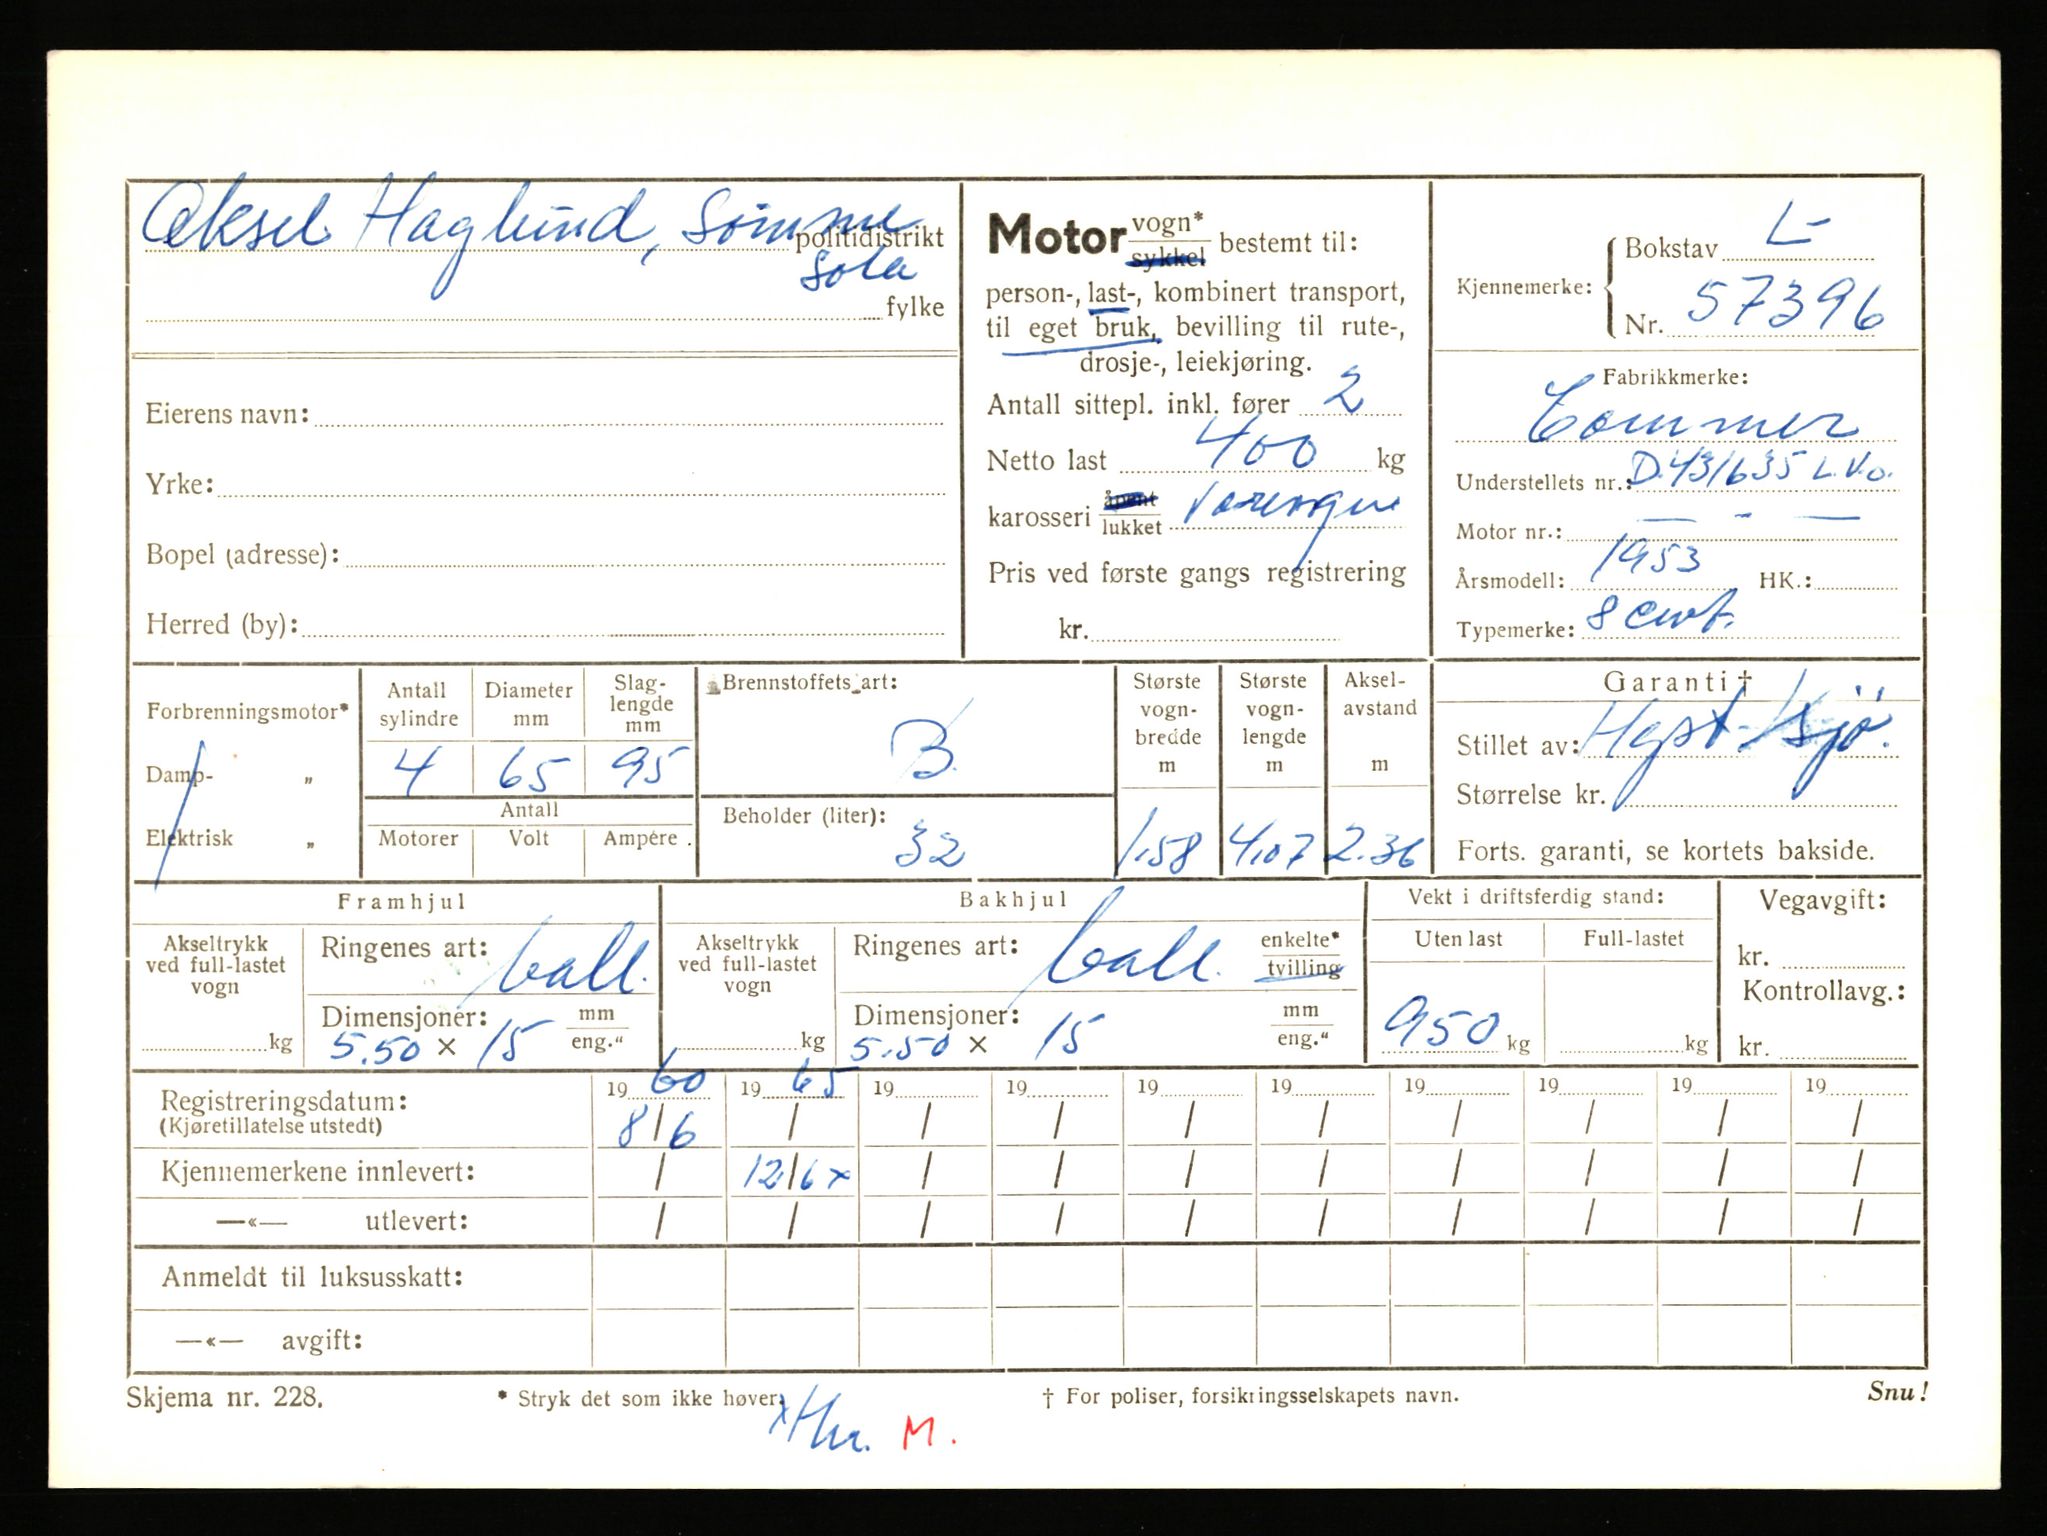 Aksel Haglund, Sømme
politidistrikt
Sola
fylke
Eierens navn:
Yrke:
Bopel (adresse):
Herred (by):
Motor vogn* sykkel bestemt til:
person-, last-, kombinert transport,
til eget bruk, bevilling til rute-,
drosje-, leiekjøring.
Antall sittepl. inkl. fører 2
Netto last 400 kg
karosseri åpent lukket Varevogn
Pris ved første gangs registrering
kr.
Kjennemerke:
Bokstav L-
Nr. 57396
Fabrikkmerke:
Commer
Understellets nr.: D.431635 L.V.O.
Motor nr.: — - —
Årsmodell: 1953 HK.:
Typemerke: 8 cwt.
Forbrenningsmotor*
Damp- „
Elektrisk „
Antall sylindre 4
Diameter mm 65
Slag-lengde mm 95
Antall
Motorer Volt Ampére.
Brennstoffets art:
B.
Beholder (liter):
32
Største vogn-bredde m 1.58
Største vogn-lengde m 4.07
Aksel-avstand m 2.36
Garanti †
Stillet av:
Størrelse kr.
Forts. garanti, se kortets bakside.
Framhjul
Akseltrykk ved full-lastet vogn
kg
Ringenes art: ball.
Dimensjoner: mm
5.50 × 15 eng."
Bakhjul
Akseltrykk ved full-lastet vogn
kg
Ringenes art: ball. enkelte* tvilling
Dimensjoner: mm
5.50 × 15 eng."
Vekt i driftsferdig stand:
Uten last Full-lastet
950 kg kg
Vegavgift:
kr.
Kontrollavg.:
kr.
Registreringsdatum: 19 60 19 65 19 19 19 19 19 19 19 19
(Kjøretillatelse utstedt) 8/6 / / / / / / / / /
Kjennemerkene innlevert: / 12/6 x / / / / / / / /
—«— utlevert: / / / / / / / / / /
Anmeldt til luksusskatt:
—«— avgift:
Skjema nr. 228. * Stryk det som ikke høver. † For poliser, forsikringsselskapets navn. Snu!
M.